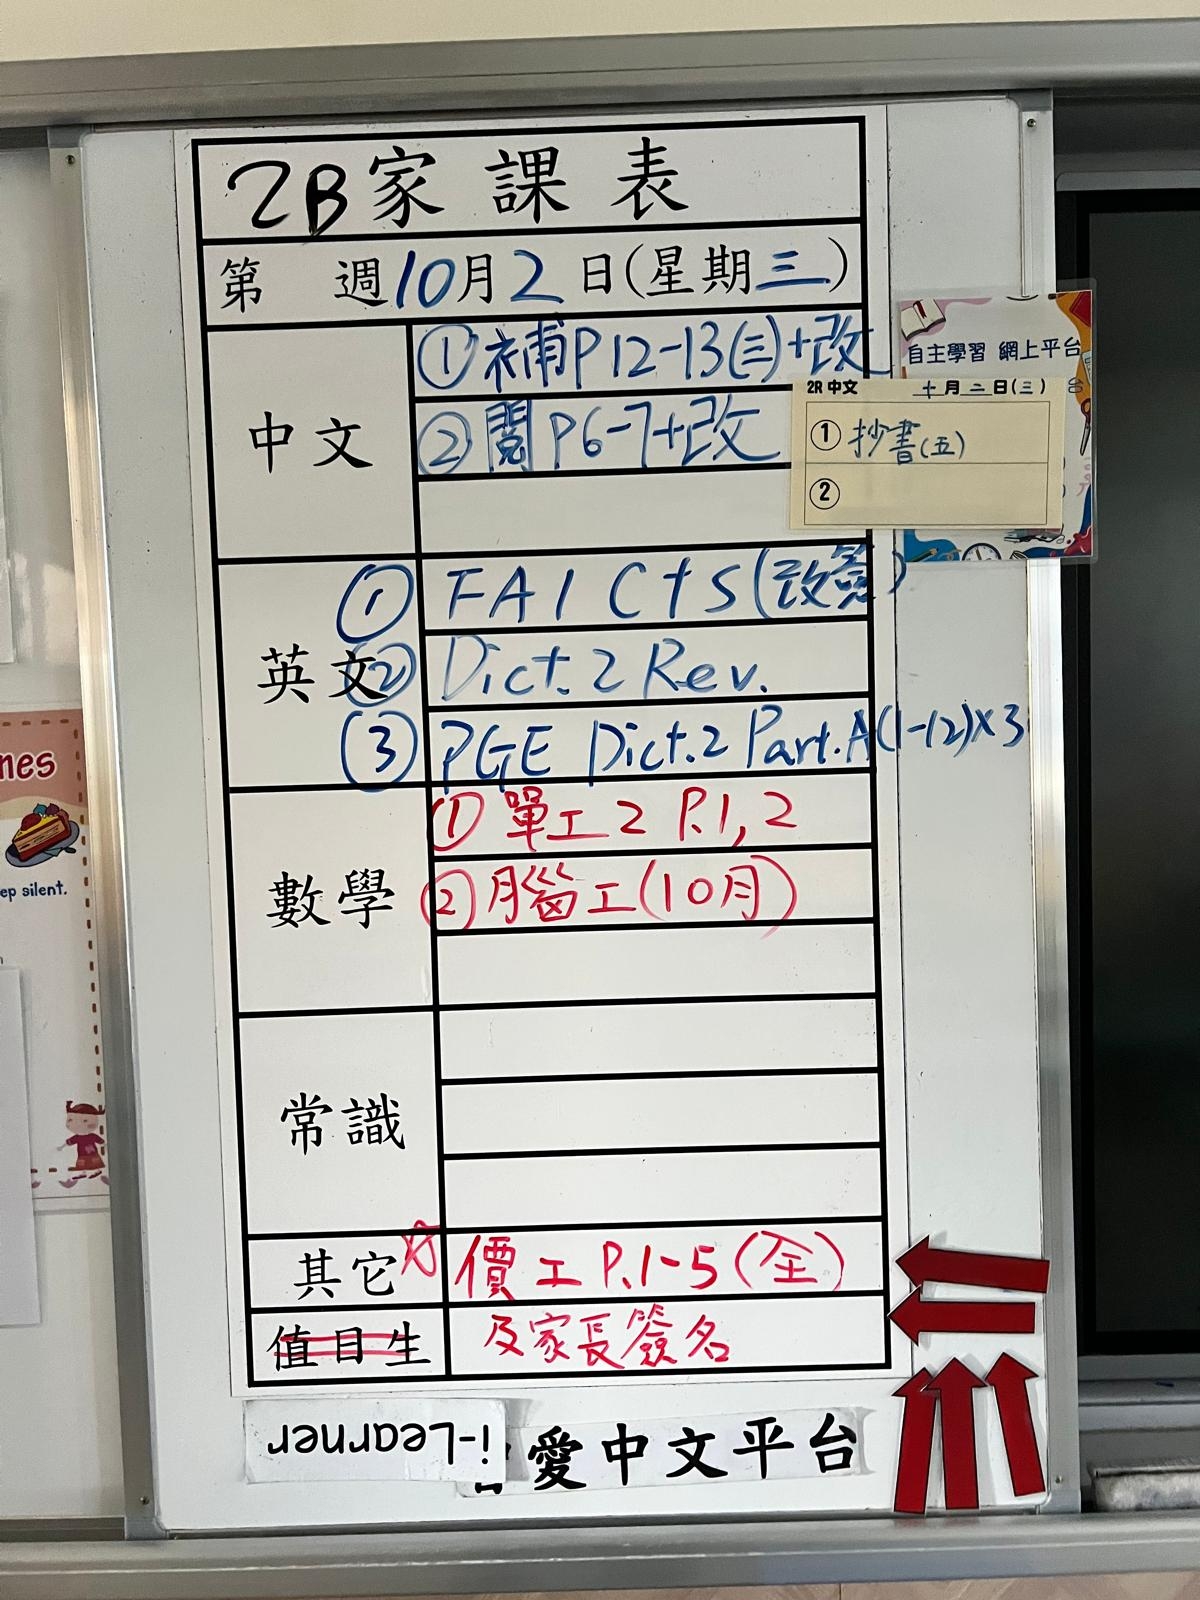 2B家課表
第 週10月2日(星期三)
中文
①補P12-13(三)+改
②閱P6-7+改
自主學習 網上平台
台
2R中文 十月二日(三)
①抄書(五)
②
英文
① FA1 C+S(改簽)
② Dict.2 Rev.
③ PGE Dict.2 Part.A(1-12)x3
數學
①單工2 P.1,2
②腦工(10月)
常識
其它
☆價工P.1-5(全)
值日生
及家長簽名
i-Learner
愛中文平台
nes
ep silent.